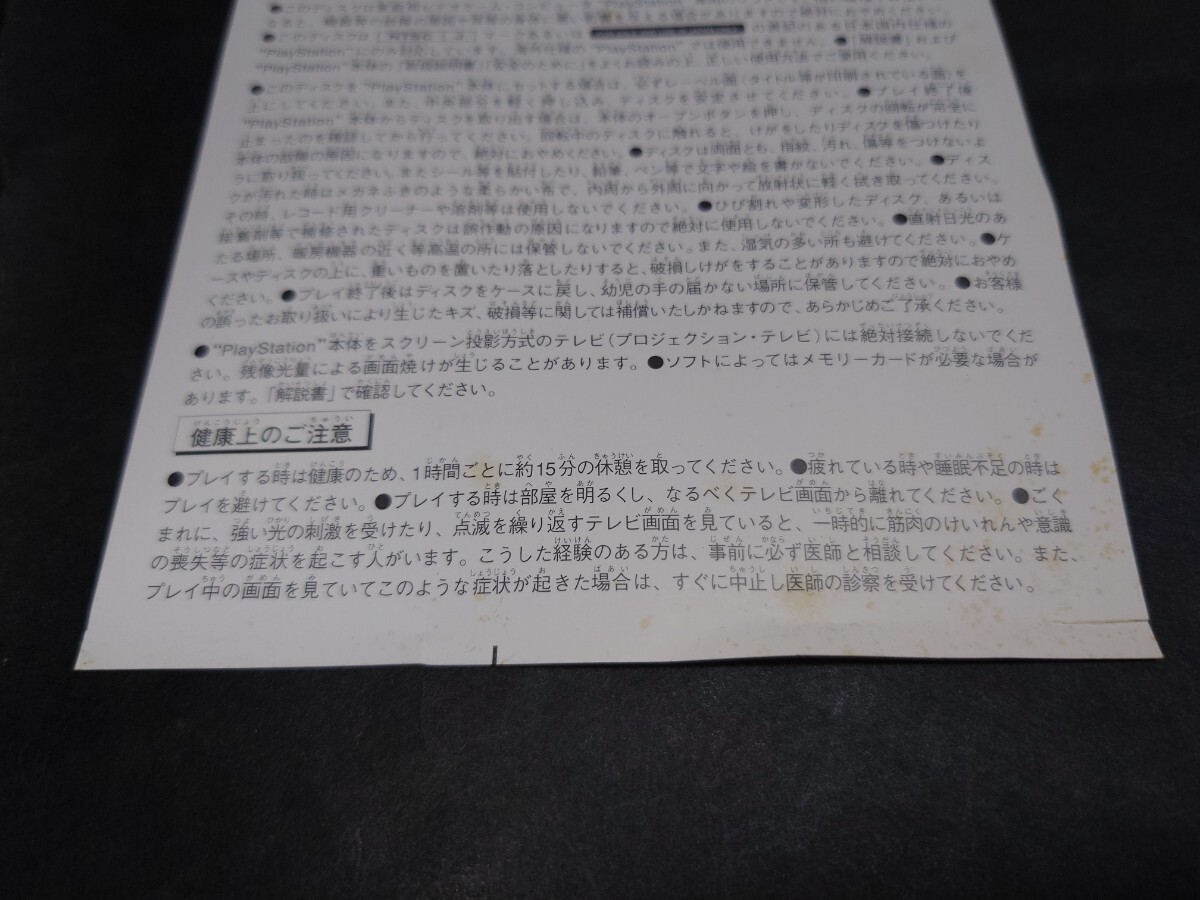 ●このディスクは家庭用ビデオゲーム・コンピュータ
●このディスクは NTSC J マークあるいは の表記のある日本国内仕様の
"PlayStation"にのみ対応しています。海外仕様の"PlayStation"では使用できません。●「解説書」および
"PlayStation"本体の「取扱説明書」「安全のために」をよくお読みの上、正しい使用方法でご使用ください。
●このディスクを"PlayStation"本体にセットする場合は、必ずレーベル面(タイトル等が印刷されている面)を
上にしてください。また、中央部分を軽く押し込み、ディスクを安定させてください。●プレイ終了後
"PlayStation"本体からディスクを取り出す場合は、本体のオープンボタンを押し、ディスクの回転が完全に
止まったのを確認してから行ってください。回転中のディスクに触れると、けがをしたりディスクを傷つけたり
本体の故障の原因になりますので、絶対におやめください。●ディスクは両面とも、指紋、汚れ、傷等をつけないよ
うに取り扱ってください。またシール等を貼付したり、鉛筆、ペン等で文字や絵を書かないでください。●ディス
クが汚れた時はメガネふきのような柔らかい布で、内周から外周に向かって放射状に軽く拭き取ってください。
その時、レコード用クリーナーや溶剤等は使用しないでください。●ひび割れや変形したディスク、あるいは
接着剤等で補修されたディスクは誤作動の原因になりますので絶対に使用しないでください。●直射日光のあ
たる場所、暖房機器の近く等高温の所には保管しないでください。また、湿気の多い所も避けてください。●ケ
ースやディスクの上に、重いものを置いたり落としたりすると、破損しけがをすることがありますので絶対におやめ
ください。●プレイ終了後はディスクをケースに戻し、幼児の手の届かない場所に保管してください。●お客様
の誤ったお取り扱いにより生じたキズ、破損等に関しては補償いたしかねますので、あらかじめご了承ください。
●"PlayStation"本体をスクリーン投影方式のテレビ(プロジェクション・テレビ)には絶対接続しないでくだ
さい。残像光量による画面焼けが生じることがあります。●ソフトによってはメモリーカードが必要な場合が
あります。「解説書」で確認してください。
健康上のご注意
●プレイする時は健康のため、1時間ごとに約15分の休憩を取ってください。●疲れている時や睡眠不足の時は
プレイを避けてください。●プレイする時は部屋を明るくし、なるべくテレビ画面から離れてください。●ごく
まれに、強い光の刺激を受けたり、点滅を繰り返すテレビ画面を見ていると、一時的に筋肉のけいれんや意識
の喪失等の症状を起こす人がいます。こうした経験のある方は、事前に必ず医師と相談してください。また、
プレイ中の画面を見ていてこのような症状が起きた場合は、すぐに中止し医師の診察を受けてください。